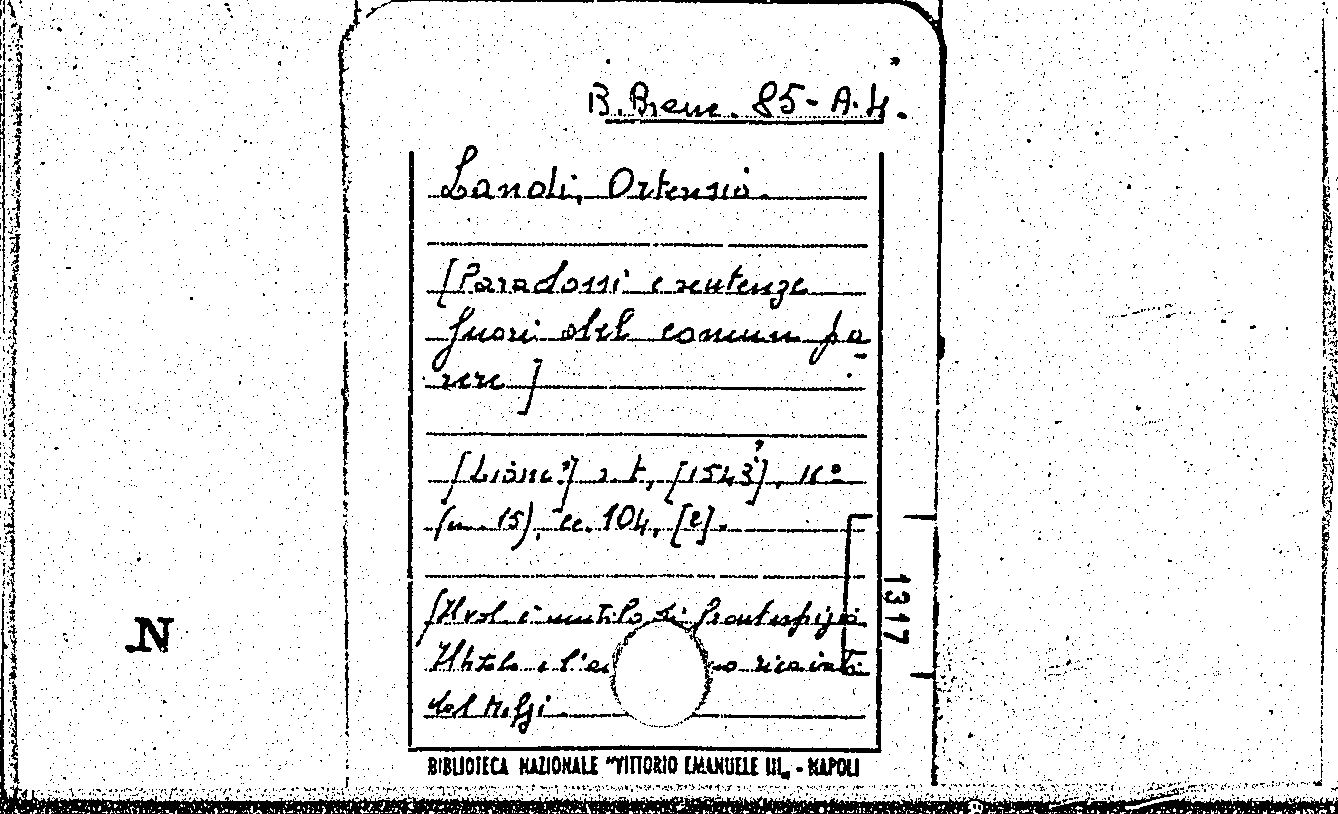 B. Branc. 85-A.4.
Landi, Ortensio.
[Paradossi e sentenze
fuori del comun pa-
rere]
[Lione?] s. t., [1543?], 16°
(cm. 15), cc. 104, [2].
[Il vol. è mutilo di frontespizio.
Il titolo e l'a o ricavati
dal Melzi
N
1317
BIBLIOTECA NAZIONALE "VITTORIO EMANUELE III„ - NAPOLI